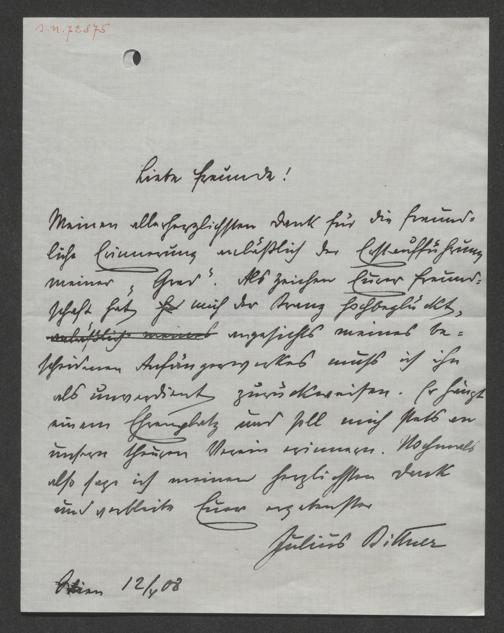 I.N. 72875
Liebe Freunde!
Meinen allerherzlichsten Dank für die freund-
liche Erinnerung anläßlich der Erstaufführung
meiner "Gred". Als Zeichen Eurer Freund-
schaft hat mich der Kranz hochbeglückt,
anläßlich meines angesichts meines be-
scheidenen Anfängerwerkes muß ich ihn
als unverdient zurückweisen. Er hängt
einem Ehrenplatz und soll mich stets an
unsern theuren Verein erinnern. Nochmals
also sage ich meinen herzlichsten Dank
und verbleibe Euer ergebenster
Julius Bittner
Wien 12/V 08